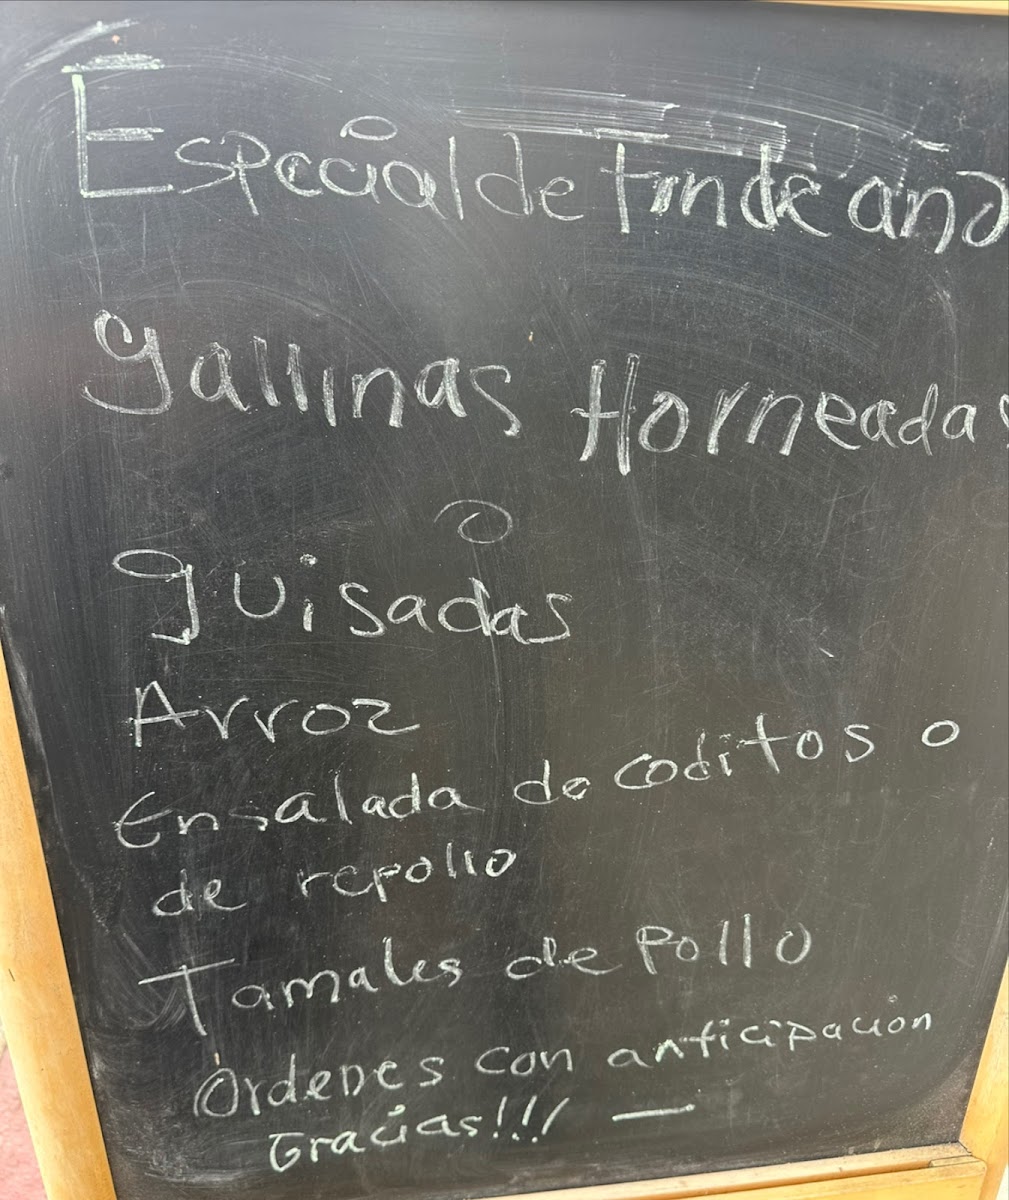 Especial de Fin de año
gallinas Horneadas
o
guisadas
Arroz
Ensalada de coditos o
de repollo
Tamales de Pollo
Ordenes con anticipación
Gracias!!! —